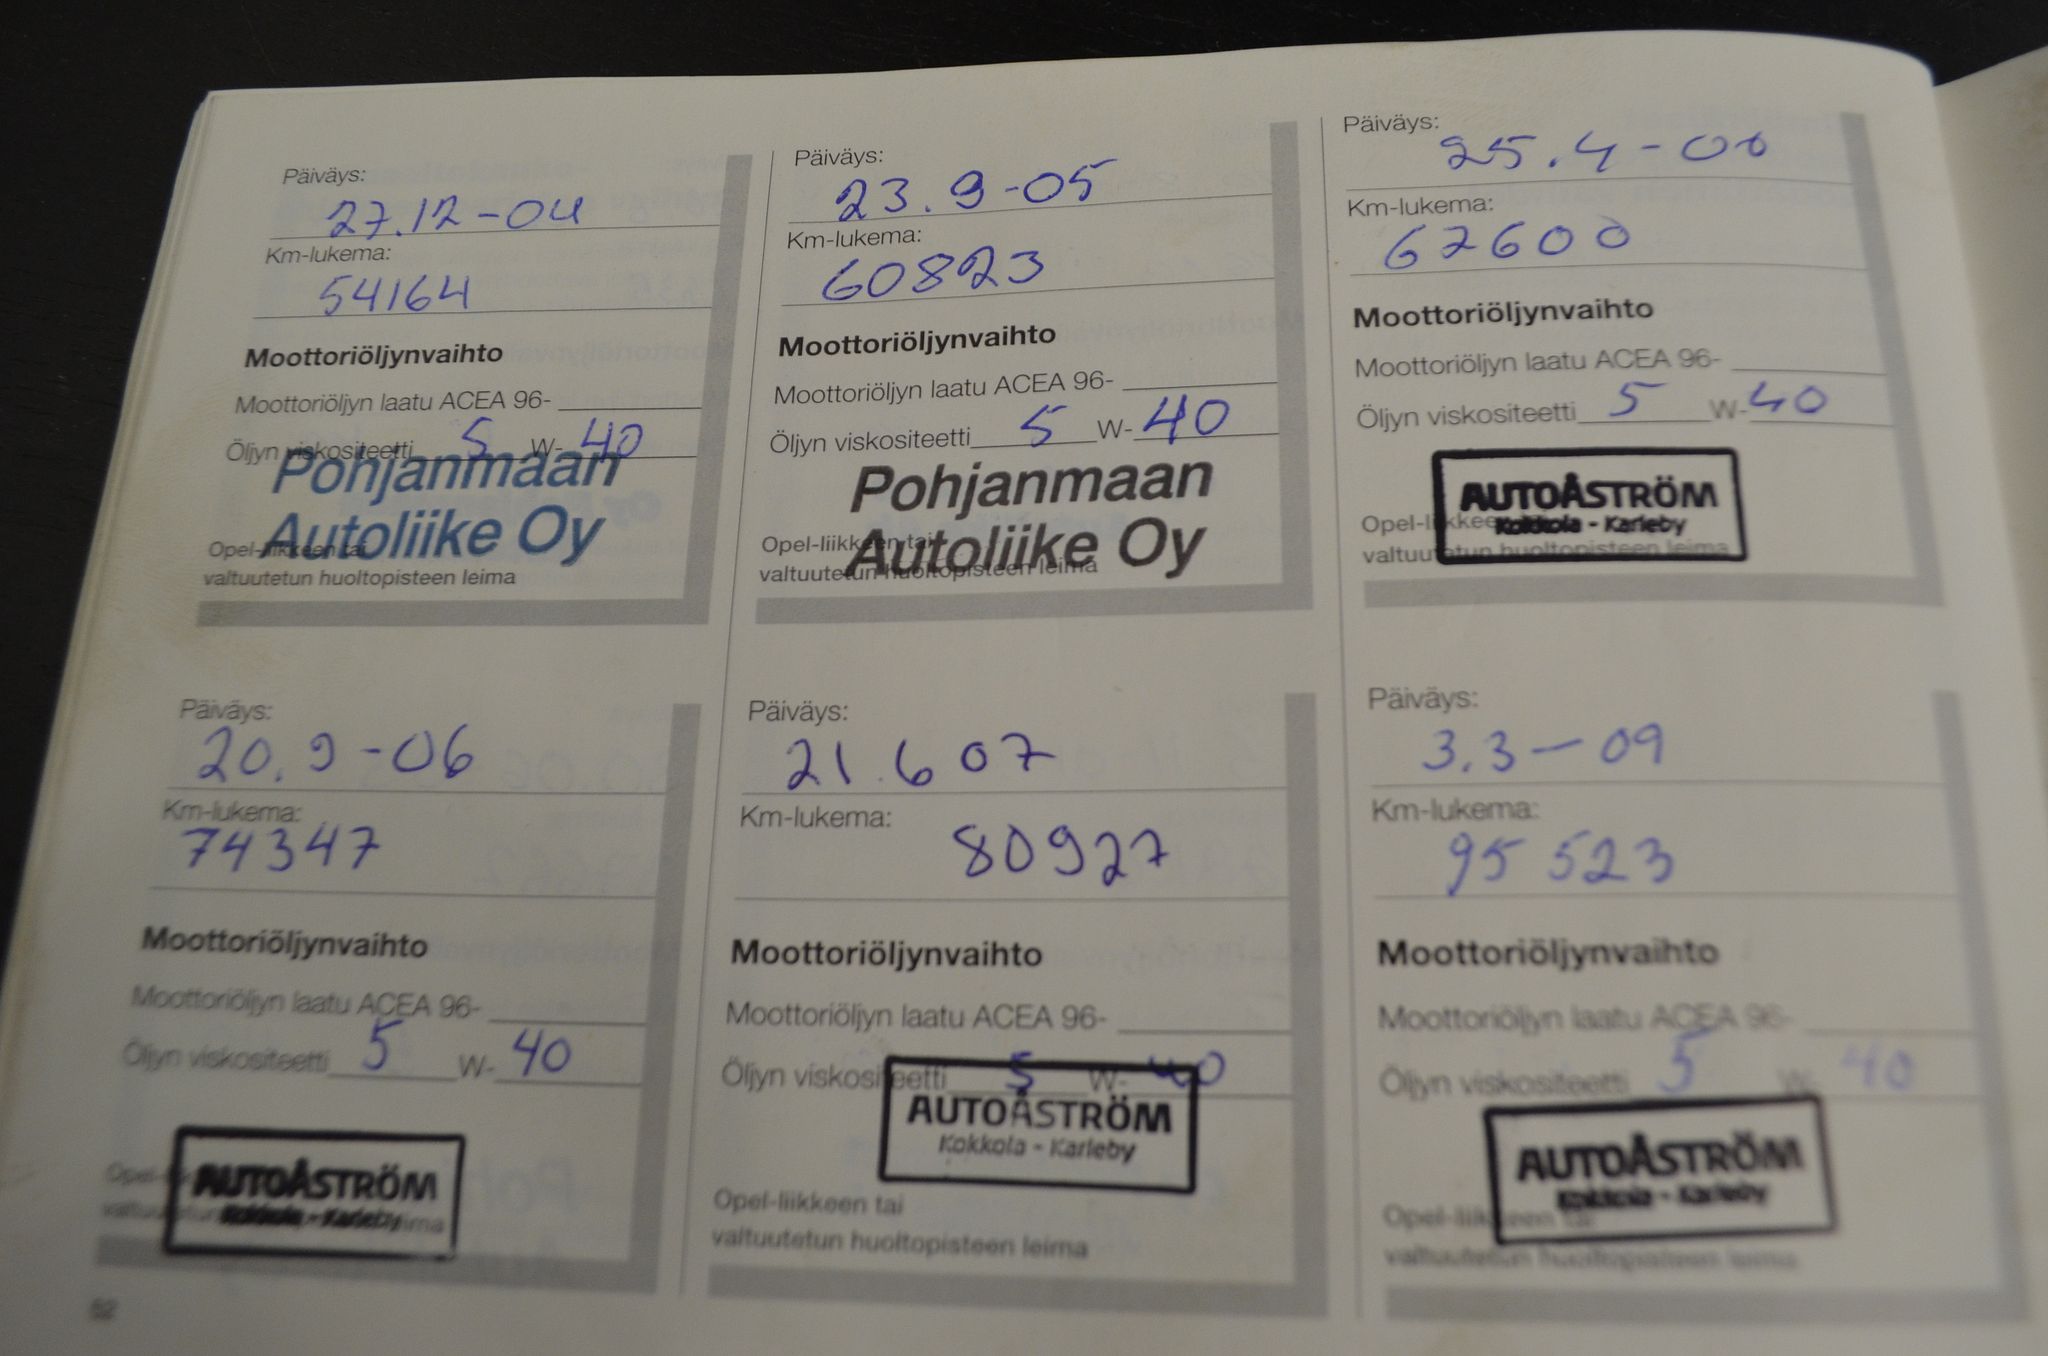 Päiväys:
27.12-04
Km-lukema:
54164
Moottoriöljynvaihto
Moottoriöljyn laatu ACEA 96-
Öljyn viskositeetti 5 W- 40
Pohjanmaan
Autoliike Oy
Opel-liikkeen tai
valtuutetun huoltopisteen leima
Päiväys:
23.9-05
Km-lukema:
60823
Moottoriöljynvaihto
Moottoriöljyn laatu ACEA 96-
Öljyn viskositeetti 5 W- 40
Pohjanmaan
Autoliike Oy
Opel-liikkeen tai
valtuutetun huoltopisteen leima
Päiväys:
25.4-06
Km-lukema:
67600
Moottoriöljynvaihto
Moottoriöljyn laatu ACEA 96-
Öljyn viskositeetti 5 W- 40
AUTOÅSTRÖM
Kokkola - Karleby
Opel-liikkeen
valtuutetun huoltopisteen leima
Päiväys:
20.9-06
Km-lukema:
74347
Moottoriöljynvaihto
Moottoriöljyn laatu ACEA 96-
Öljyn viskositeetti 5 W- 40
AUTOÅSTRÖM
Kokkola - Karleby
leima
Päiväys:
21.6 07
Km-lukema:
80927
Moottoriöljynvaihto
Moottoriöljyn laatu ACEA 96-
Öljyn viskositeetti 5 W- 40
AUTOÅSTRÖM
Kokkola - Karleby
Opel-liikkeen tai
valtuutetun huoltopisteen leima
Päiväys:
3.3-09
Km-lukema:
95 523
Moottoriöljynvaihto
Moottoriöljyn laatu ACEA 96-
Öljyn viskositeetti 5 W- 40
AUTOÅSTRÖM
Kokkola - Karleby
Opel-liikkeen tai
valtuutetun huoltopisteen leima
52